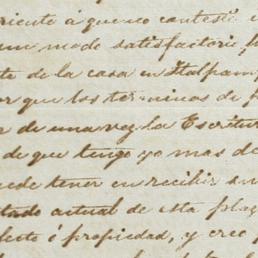 riente á que no contestó
un modo satisfactorio
te de la casa en Ttalpam
or que los terminos de
r de una vez la Escritur
de que tengo yo mas de
uede tener en recibir su
tado actual de esta plaz
lecto ó propiedad, y creo